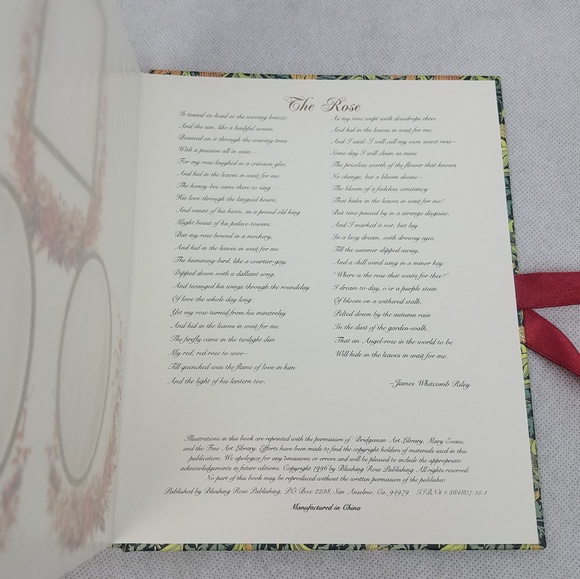 The Rose
It tossed its head at the wooing breeze;
And the sun, like a bashful swain,
Beamed on it through the waving trees
With a passion all in vain,—
For my rose laughed in a crimson glee,
And hid in the leaves in wait for me.
The honey-bee came there to sing
His love through the languid hours,
And vaunt of his hives, as a proud old king
Might boast of his palace-towers:
But my rose bowed in a mockery,
And hid in the leaves in wait for me.
The humming-bird, like a courtier gay,
Dipped down with a dalliant song,
And twanged his wings through the roundelay
Of love the whole day long:
Yet my rose turned from his minstrelsy
And hid in the leaves in wait for me.
The firefly came in the twilight dim
My red, red rose to woo—
Till quenched was the flame of love in him
And the light of his lantern too,
As my rose wept with dewdrops three
And hid in the leaves in wait for me.
And I said: I will call my own sweet rose—
Some day I will claim as mine
The priceless worth of the flower that knows
No change, but a bloom divine—
The bloom of a fadeless constancy
That hides in the leaves in wait for me!
But time passed by in a strange disguise,
And I marked it not, but lay
In a lazy dream, with drowsy eyes,
Till the summer slipped away,
And a chill wind sang in a minor key:
"Where is the rose that waits for thee?"
I dream to-day, o'er a purple stain
Of bloom on a withered stalk,
Pelted down by the autumn rain
In the dust of the garden-walk,
That an Angel-rose in the world to be
Will hide in the leaves in wait for me.
~James Whitcomb Riley
Illustrations in this book are reprinted with the permission of: Bridgeman Art Library, Mary Evans,
and the Fine Art Library. Efforts have been made to find the copyright holders of materials used in this
publication. We apologize for any omissions or errors and will be pleased to include the appropriate
acknowledgements in future editions. Copyright 1996 by Blushing Rose Publishing. All rights reserved.
No part of this book may be reproduced without the written permission of the publisher.
Published by Blushing Rose Publishing, P.O. Box 2238, San Anselmo, Ca. 94979 I.S.B.N.# 1-884807-15-1
Manufactured in China